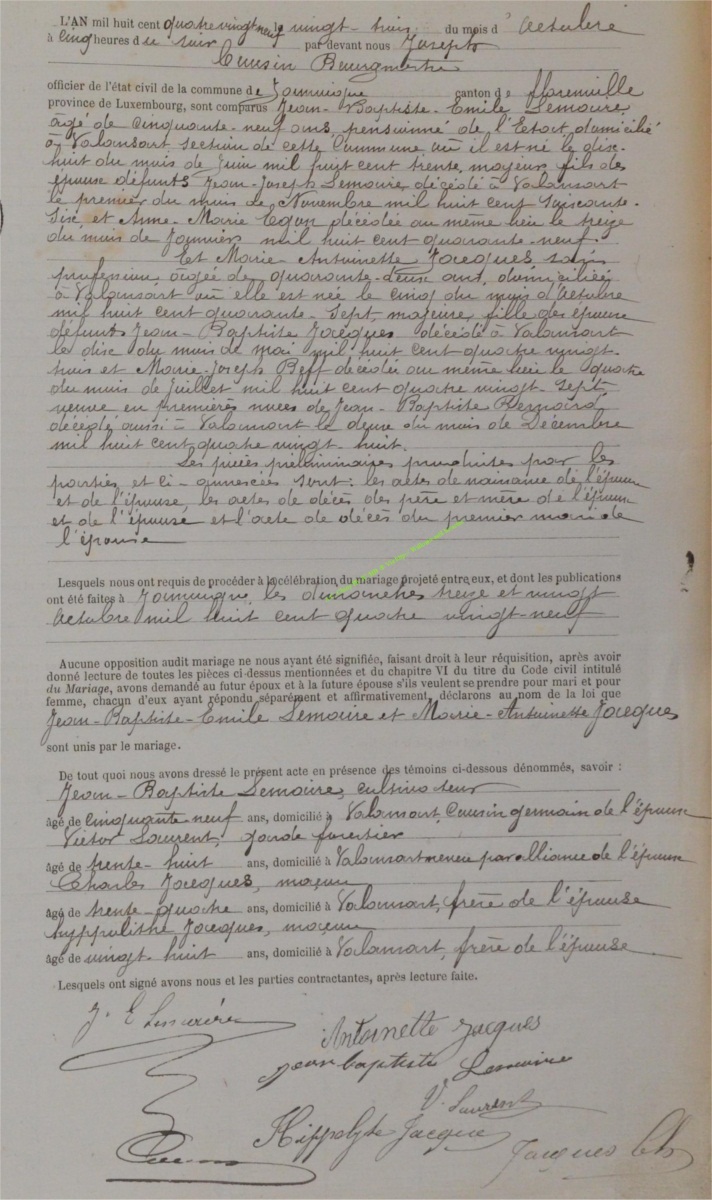 L'AN mil huit cent quatre vingt neuf le vingt-trois du mois d'Octobre
à cinq heures du soir par devant nous Joseph
Cousin Bourgmestre
officier de l'état civil de la commune de Jamoigne canton de florenville
province de Luxembourg, sont comparus Jean-Baptiste-Emile Lemaire
âgé de cinquante-neuf ans, pensionné de l'Etat domicilié
à Valansart section de cette Commune où il est né le dix-
huit du mois de Juin mil huit cent trente, majeur fils des
époux défunts Jean-Joseph Lemaire décédé à Valansart
le premier du mois de Novembre mil huit cent soixante-
six et Anne-Marie Egon décédée au même lieu le treize
du mois de Janvier mil huit cent quarante-neuf.
Et Marie-Antoinette Jacques sans
profession âgée de quarante-deux ans, domiciliée
à Valansart où elle est née le cinq du mois d'Octobre
mil huit cent quarante-sept, majeure, fille des époux
défunts Jean-Baptiste Jacques décédé à Valansart
le dix du mois de mai mil huit cent quatre vingt-
trois et Marie-Joseph décédée au même lieu le quatre
du mois de Juillet mil huit cent quatre vingt-sept
veuve en premières noces de Jean-Baptiste Bernard
décédé aussi à Valansart le deux du mois de Décembre
mil huit cent quatre vingt-huit.
Les pièces préliminaires produites par les
parties et ci-annexées sont: les actes de naissance de l'époux
et de l'épouse, les actes de décès des père et mère de l'époux
et de l'épouse et l'acte de décès du premier mari de
l'épouse
Lesquels nous ont requis de procéder à la célébration du mariage projeté entre eux, et dont les publications
ont été faites à Jamoigne, les dimanches treize et vingt
Octobre mil huit cent quatre vingt-neuf
Aucune opposition audit mariage ne nous ayant été signifiée, faisant droit à leur réquisition, après avoir
donné lecture de toutes les pièces ci-dessus mentionnées et du chapitre VI du titre du Code civil intitulé
du Mariage, avons demandé au futur époux et à la future épouse s'ils veulent se prendre pour mari et pour
femme, chacun d'eux ayant répondu séparément et affirmativement, déclarons au nom de la loi que
Jean-Baptiste-Emile Lemaire et Marie-Antoinette Jacques
sont unis par le mariage.
De tout quoi nous avons dressé le présent acte en présence des témoins ci-dessous dénommés, savoir :
Jean-Baptiste Lemaire, cultivateur
âgé de cinquante neuf ans, domicilié à Valansart, Cousin germain de l'époux
Victor Laurent, garde forestier
âgé de trente-huit ans, domicilié à Valansart neveu par alliance de l'époux
Charles Jacques, maçon
âgé de trente-quatre ans, domicilié à Valansart, frère de l'épouse
Hyppolithe Jacques, maçon
âgé de vingt-huit ans, domicilié à Valansart, frère de l'épouse
Lesquels ont signé avec nous et les parties contractantes, après lecture faite.
J. E Lemaire
Antoinette Jacques
Jean baptiste Lemaire
V. Laurent
Hippolyte Jacques
Jacques Ch
Cousin